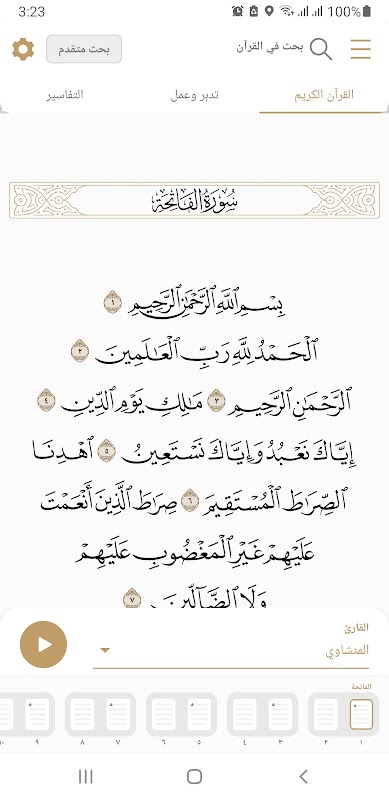 3:23 100%
بحث في القرآن بحث متقدم
القرآن الكريم تدبر وعمل التفاسير
سُورَةُ الْفَاتِحَةِ
بِسْمِ اللَّهِ الرَّحْمَٰنِ الرَّحِيمِ ١
الْحَمْدُ لِلَّهِ رَبِّ الْعَالَمِينَ ٢
الرَّحْمَٰنِ الرَّحِيمِ ٣ مَالِكِ يَوْمِ الدِّينِ ٤
إِيَّاكَ نَعْبُدُ وَإِيَّاكَ نَسْتَعِينُ ٥ اهْدِنَا
الصِّرَاطَ الْمُسْتَقِيمَ ٦ صِرَاطَ الَّذِينَ أَنْعَمْتَ
عَلَيْهِمْ غَيْرِ الْمَغْضُوبِ عَلَيْهِمْ
وَلَا الضَّالِّينَ ٧
القارئ
المنشاوي
الفاتحة
١ ٢ ٣ ٤ ٥ ٦ ٧ ٨ ٩ ١٠